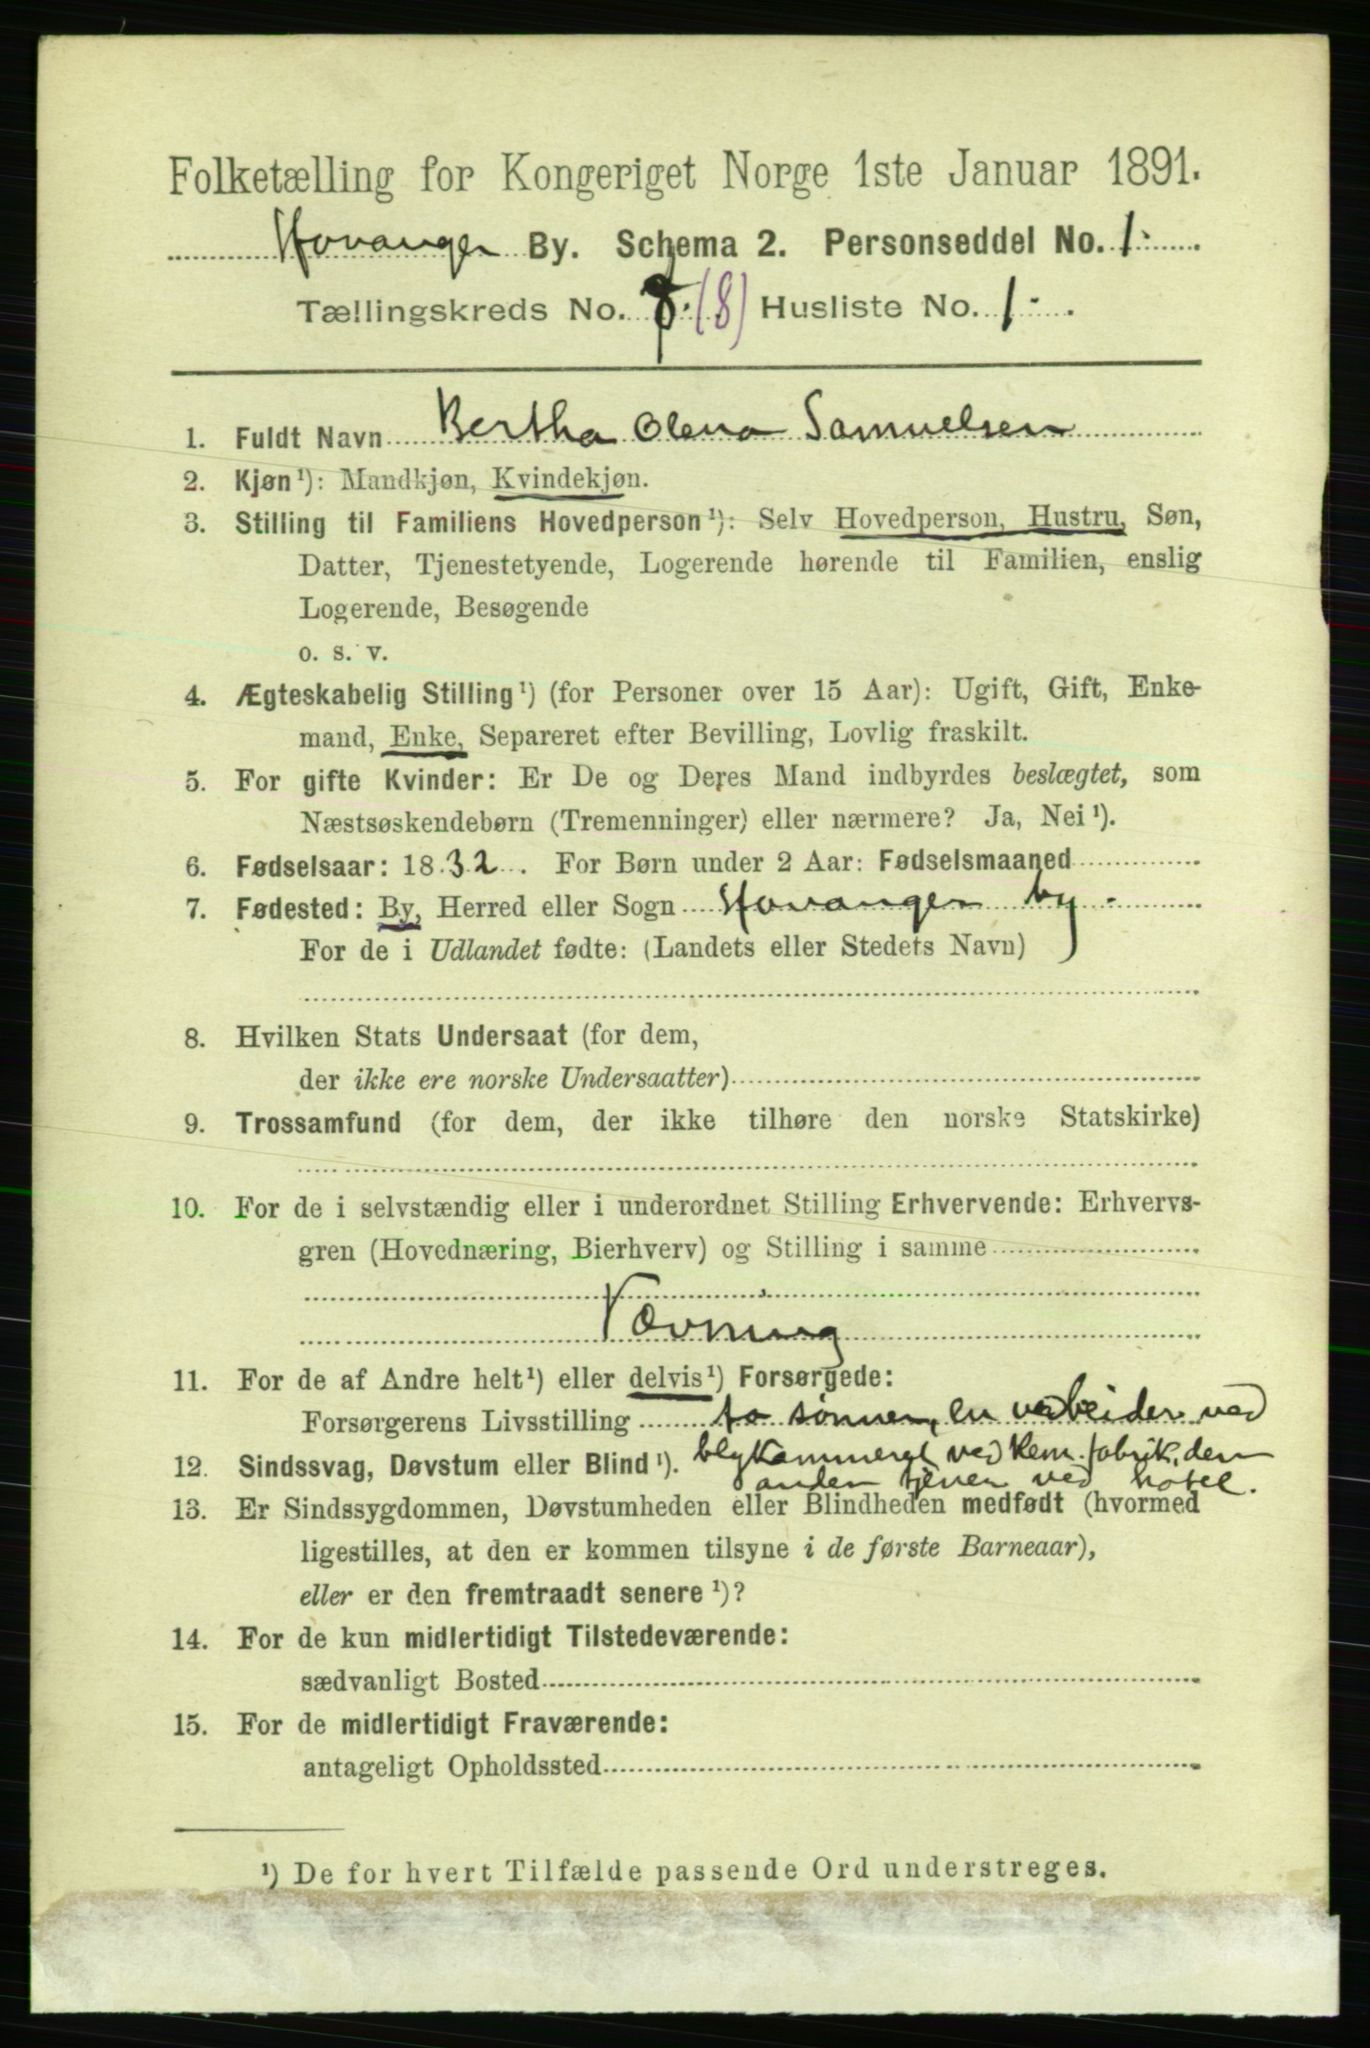 Folketælling for Kongeriget Norge 1ste Januar 1891.
Stavanger By. Schema 2. Personseddel No. 1.
Tællingskreds No. (8) Husliste No. 1.
1. Fuldt Navn Bertha Olena Samuelsen
2. Kjøn¹): Mandkjøn, Kvindekjøn.
3. Stilling til Familiens Hovedperson¹): Selv Hovedperson, Hustru, Søn,
Datter, Tjenestetyende, Logerende hørende til Familien, enslig
Logerende, Besøgende
o. s. v.
4. Ægteskabelig Stilling¹) (for Personer over 15 Aar): Ugift, Gift, Enke-
mand, Enke, Separeret efter Bevilling, Lovlig fraskilt.
5. For gifte Kvinder: Er De og Deres Mand indbyrdes beslægtet, som
Næstsøskendebørn (Tremenninger) eller nærmere? Ja, Nei¹).
6. Fødselsaar: 1832. For Børn under 2 Aar: Fødselsmaaned
7. Fødested: By, Herred eller Sogn Stavanger by.
For de i Udlandet fødte: (Landets eller Stedets Navn)
8. Hvilken Stats Undersaat (for dem,
der ikke ere norske Undersaatter)
9. Trossamfund (for dem, der ikke tilhøre den norske Statskirke)
10. For de i selvstændig eller i underordnet Stilling Erhvervende: Erhvervs-
gren (Hovednæring, Bierhverv) og Stilling i samme
Vævning
11. For de af Andre helt¹) eller delvis¹) Forsørgede:
Forsørgerens Livsstilling to sønner, en arbeider ved
12. Sindssvag, Døvstum eller Blind¹). blykammeret ved kem. fabrik, den
anden tjener ved hotel.
13. Er Sindssygdommen, Døvstumheden eller Blindheden medfødt (hvormed
ligestilles, at den er kommen tilsyne i de første Barneaar),
eller er den fremtraadt senere¹)?
14. For de kun midlertidigt Tilstedeværende:
sædvanligt Bosted
15. For de midlertidigt Fraværende:
antageligt Opholdssted
¹) De for hvert Tilfælde passende Ord understreges.